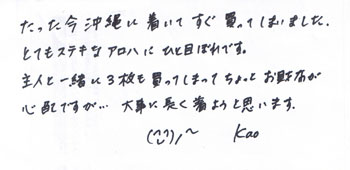 たった今沖縄に着いてすぐ買ってしまいました。
とてもステキなアロハにひと目ぼれです。
主人と一緒に3枚も買ってしまってちょっとお財布が
心配ですが… 大事に長く着ようと思います。
(^^)/~ Kao